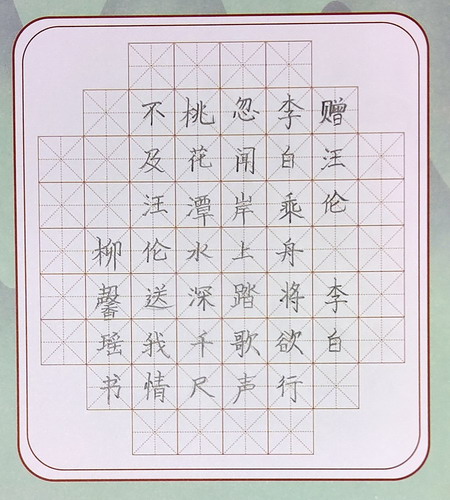 赠汪伦 李白
李白乘舟将欲行
忽闻岸上踏歌声
桃花潭水深千尺
不及汪伦送我情
柳馨瑶书